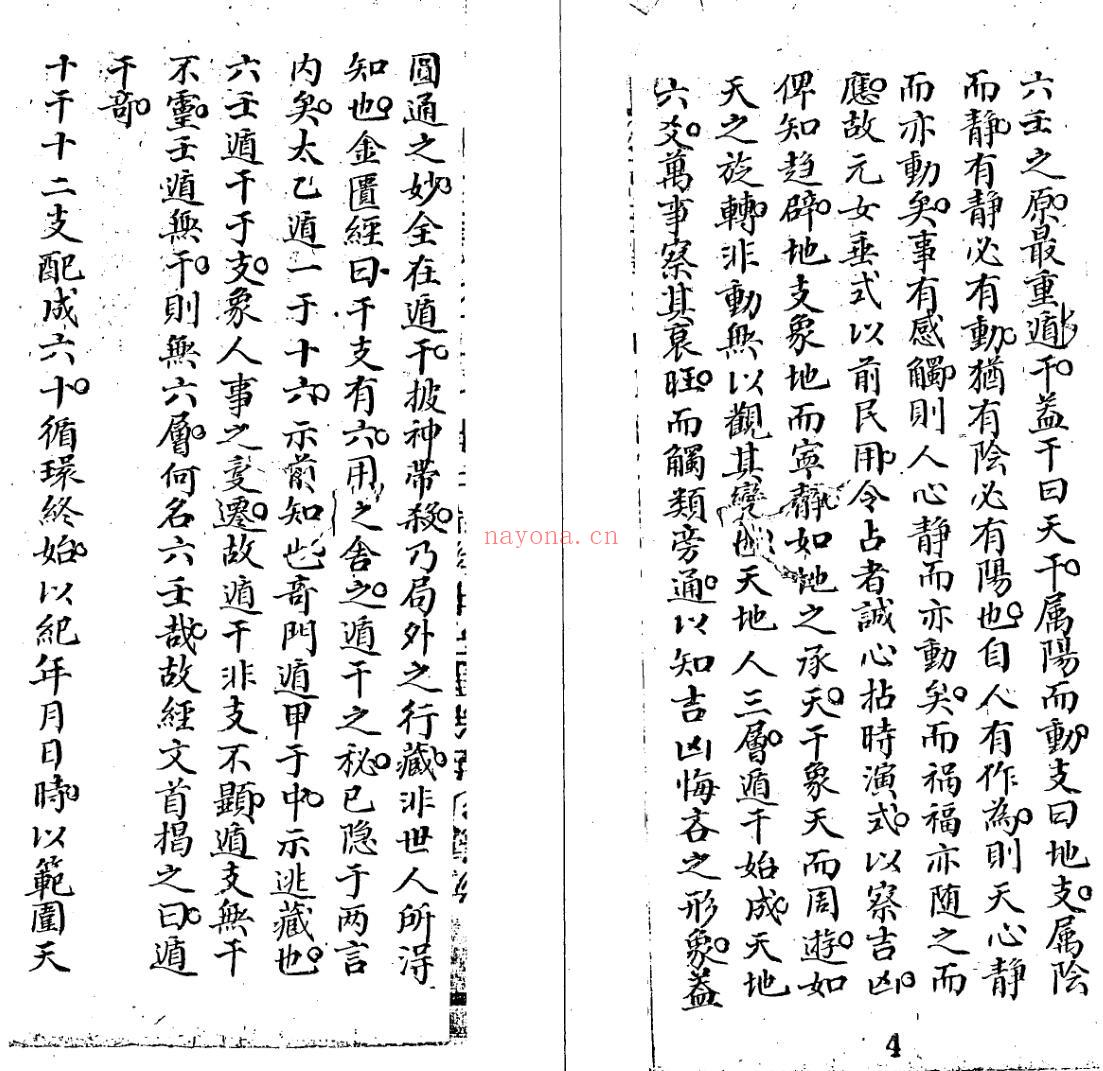 六壬之原。最重遁干。盖干曰天干。属陽而動。支曰地支。属陰
而静。有静必有動。猶有陰必有陽也。自人有作為。則天心静
而亦動矣。事有感觸。則人心静而亦動矣。而禍福亦随之而
應。故元女垂式以前民用。令占者誠心拈時演式。以察吉凶。
俾知趋辟。地支象地而寧静。如地之承天。天干象天而周遊。如
天之旋轉。非動無以觀其變也。天地人三層。遁干始成。天地
六爻。萬事察其衰旺。而觸類旁通。以知吉凶悔吝之形象。盖
圓通之妙。全在遁干。披神帶殺。乃局外之行藏。非世人所淂
知也。金匱經曰。干支有六。用之舍之。遁干之秘。已隐于两言
内矣。太乙遁一于十六。示前知也。奇門遁甲于中。示逃藏也。
六壬遁干于支。象人事之变遷。故遁干非支不顯。遁支無干
不靈。壬遁無干。則無六層。何名六壬哉。故經文首揭之曰。遁
干奇。
十干十二支配成六十。循環終始。以紀年月日時。以範圍天
4
nayona.cn